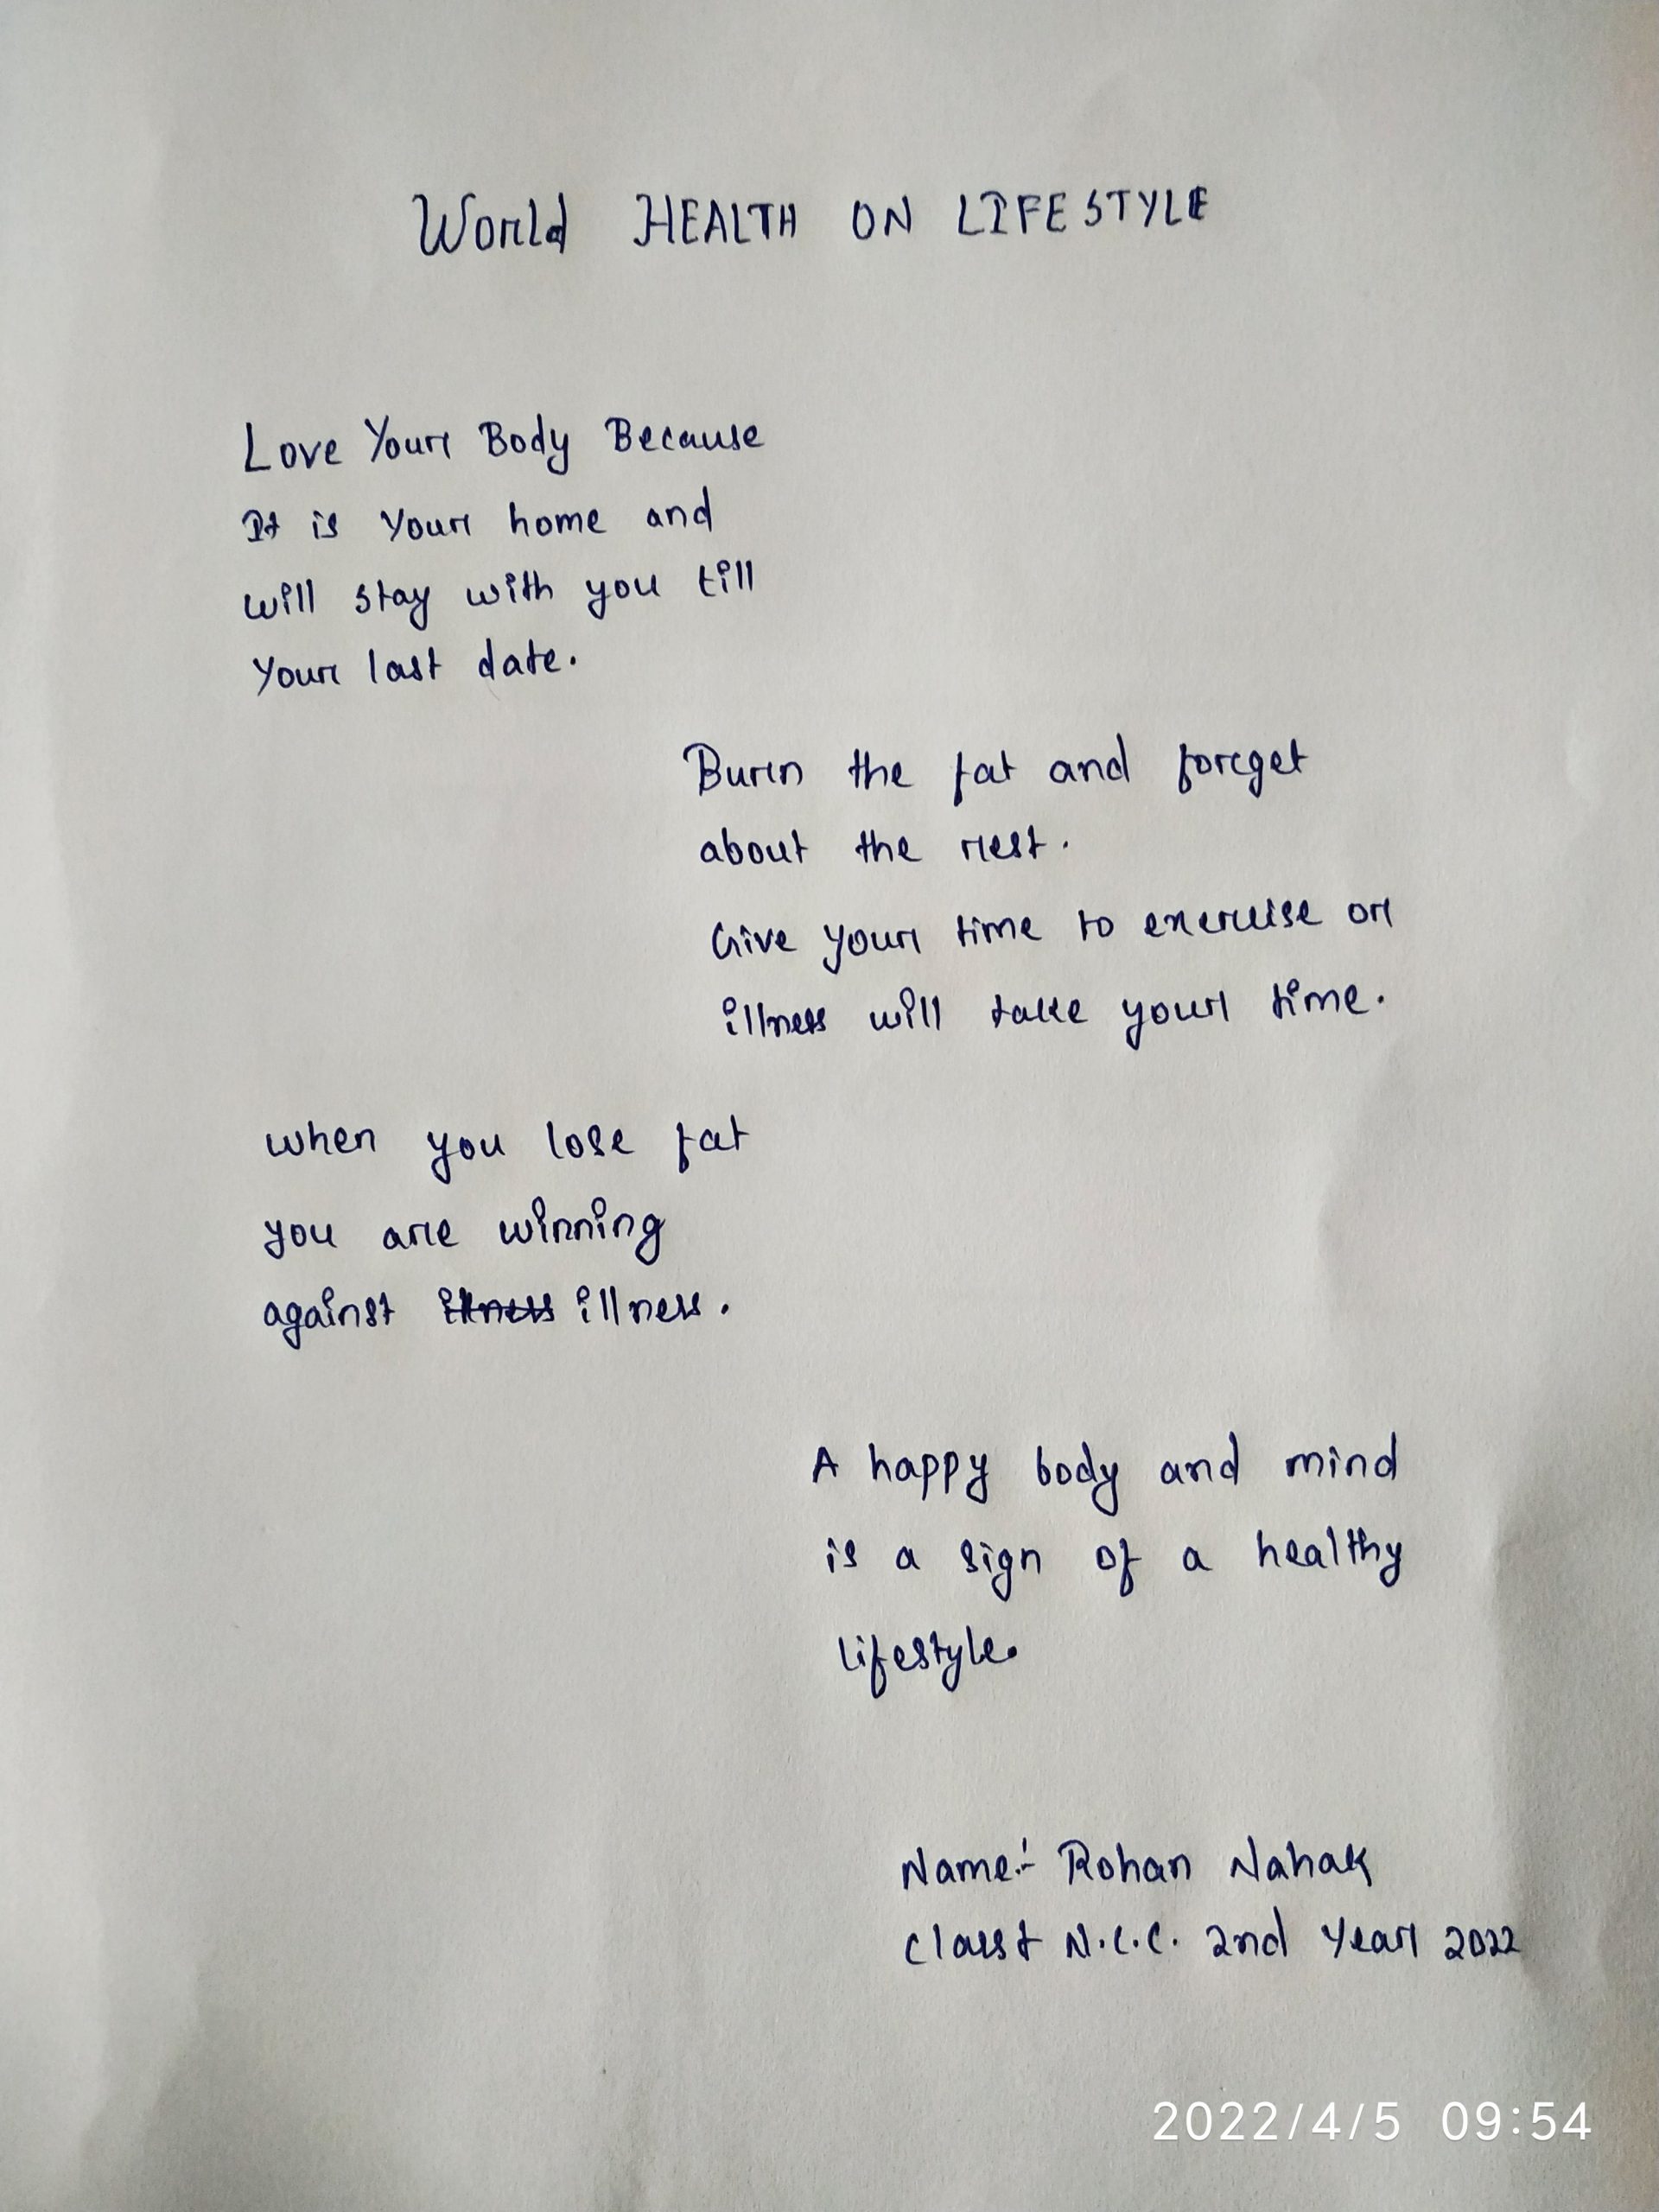 World HEALTH ON LIFESTYLE
Love Your Body Because
It is Your home and
will stay with you till
Your last date.
Burn the fat and forget
about the rest.
Give your time to exercise or
illness will take your time.
when you lose fat
you are winning
against illness illness.
A happy body and mind
is a sign of a healthy
lifestyle.
Name:- Rohan Nahak
N.C.C. 2nd Year 2022
2022/4/5 09:54